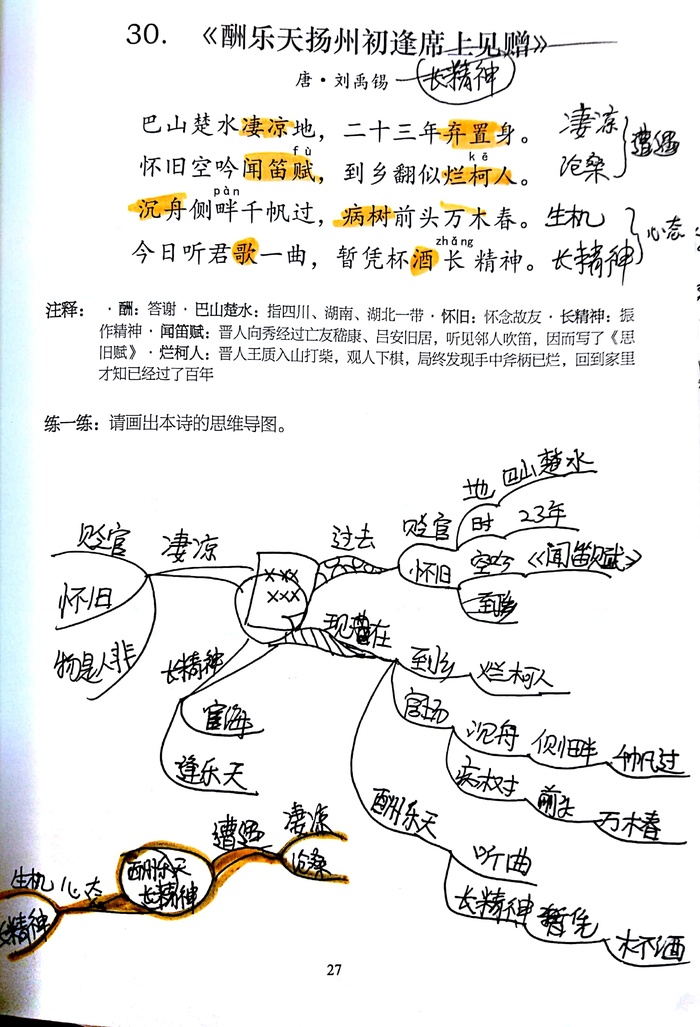 30. 《酬乐天扬州初逢席上见赠》
唐·刘禹锡 长精神
巴山楚水凄凉地，二十三年弃置身。 凄凉 遭遇
fù kē
怀旧空吟闻笛赋，到乡翻似烂柯人。 沧桑
pàn
沉舟侧畔千帆过，病树前头万木春。 生机 心态
zhǎng
今日听君歌一曲，暂凭杯酒长精神。 长精神
注释： ·酬：答谢·巴山楚水：指四川、湖南、湖北一带·怀旧：怀念故友·长精神：振
作精神·闻笛赋：晋人向秀经过亡友嵇康、吕安旧居，听见邻人吹笛，因而写了《思
旧赋》·烂柯人：晋人王质入山打柴，观人下棋，局终发现手中斧柄已烂，回到家里
才知已经过了百年
练一练：请画出本诗的思维导图。
地 巴山楚水
贬官 凄凉 过去 贬官 时 23年
×××
×××
怀旧 怀旧 空吟 《闻笛赋》
物是人非 现在
长精神 到乡 烂柯人
宦海 官场 沉舟 侧畔 千帆过
逢乐天 病树 前头 万木春
酬乐天 听曲
长精神 暂凭 杯酒
生机 心态 酬乐天 遭遇 凄凉
长精神 长精神 沧桑
27